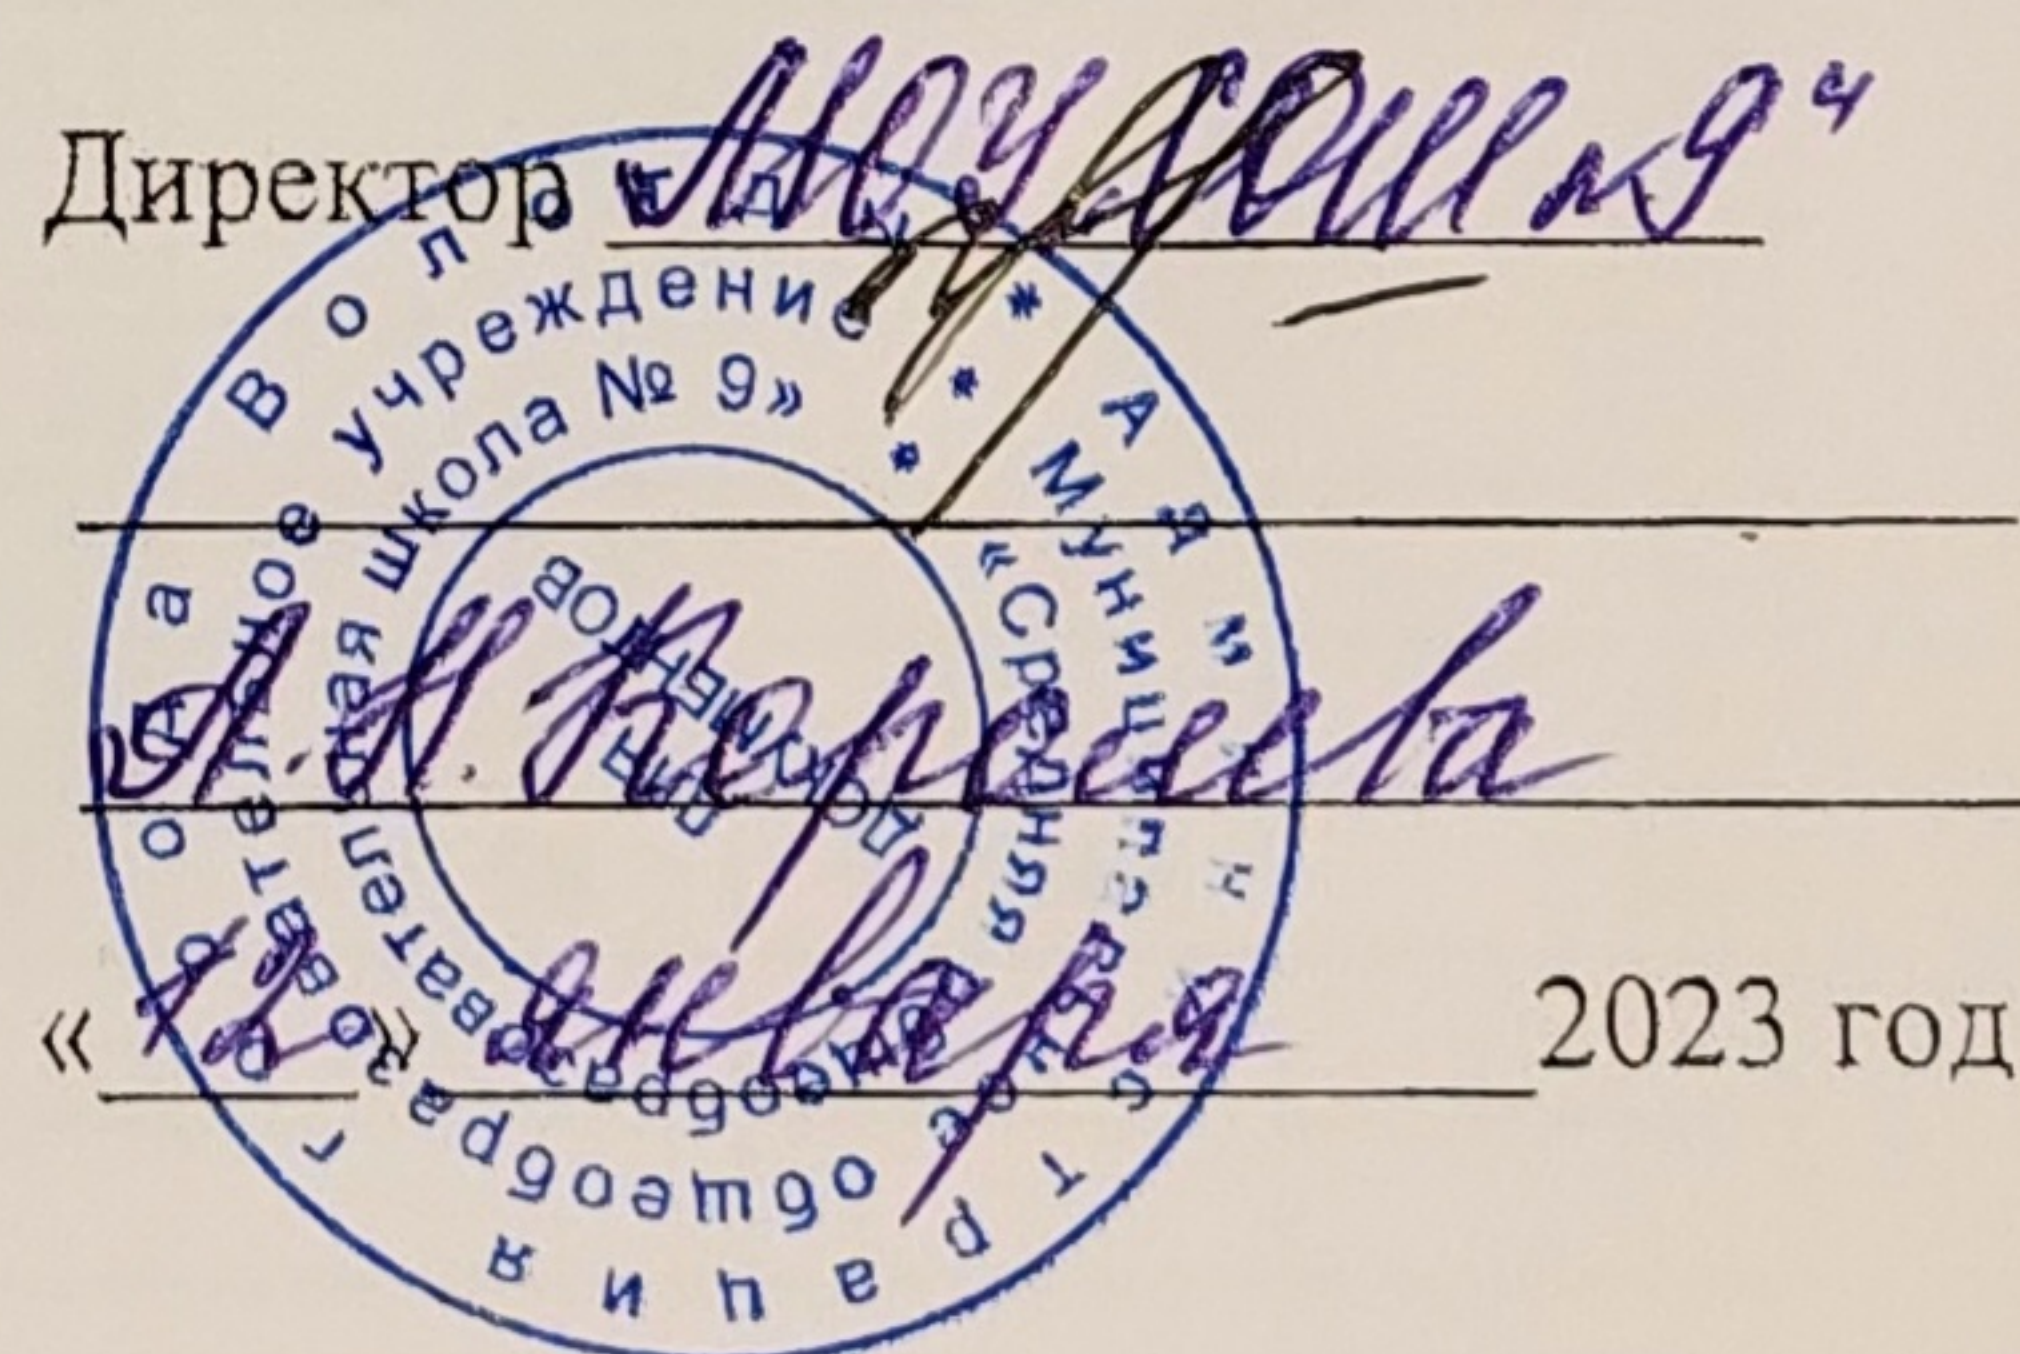 Директор "МОУ СОШ №9"
Л.Н. Коршева
« 12 » января 2023 год
Администрация города Вологды
Муниципальное общеобразовательное учреждение
«Средняя общеобразовательная школа № 9»
* * *
Для
документов